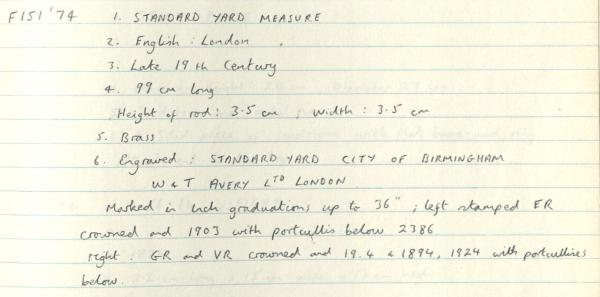 F151'74 1. STANDARD YARD MEASURE
2. English : London.
3. Late 19th Century
4. 99 cm long
Height of rod : 3.5 cm width : 3.5 cm
5. Brass
6. Engraved : STANDARD YARD CITY OF BIRMINGHAM
W & T AVERY LTD LONDON
Marked in inch graduations up to 36" ; left stamped ER
crowned and 1903 with portcullis below 2386
right : GR and VR crowned and 19.4 & 1894, 1924 with portcullises
below.